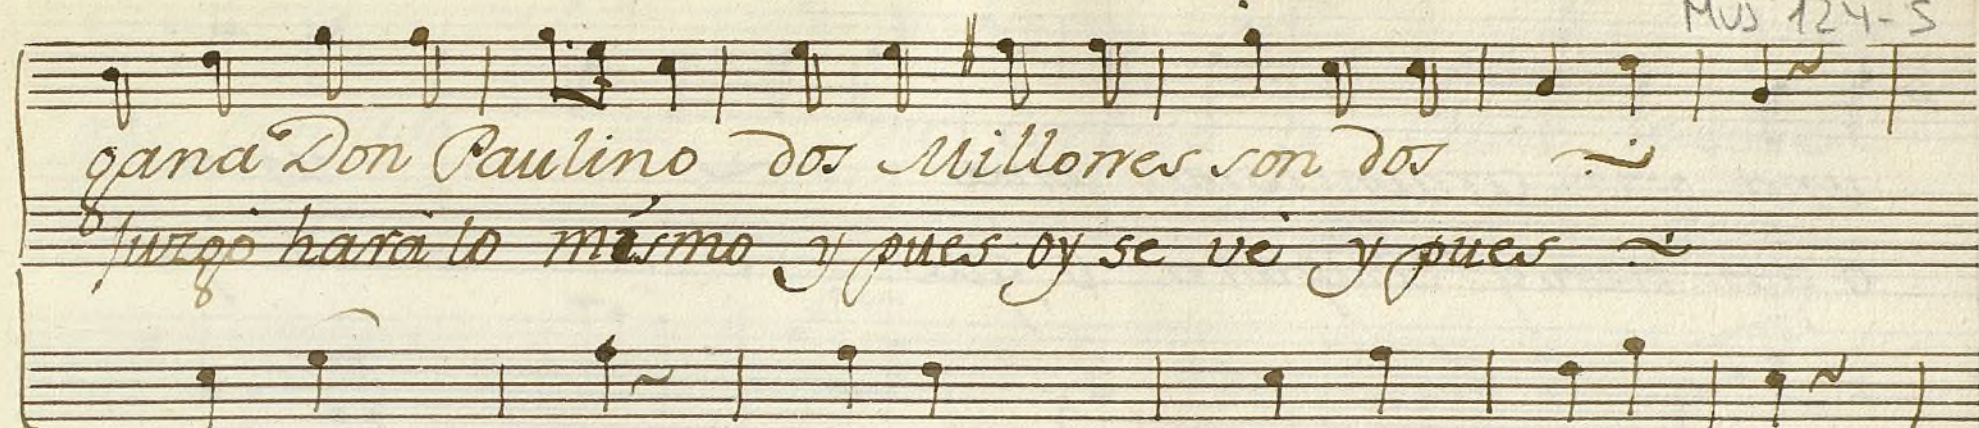 Mus 124-5
gana Don Paulino dos Millones son dos
Juzgo hará lo mismo y pues oy se vé y pues